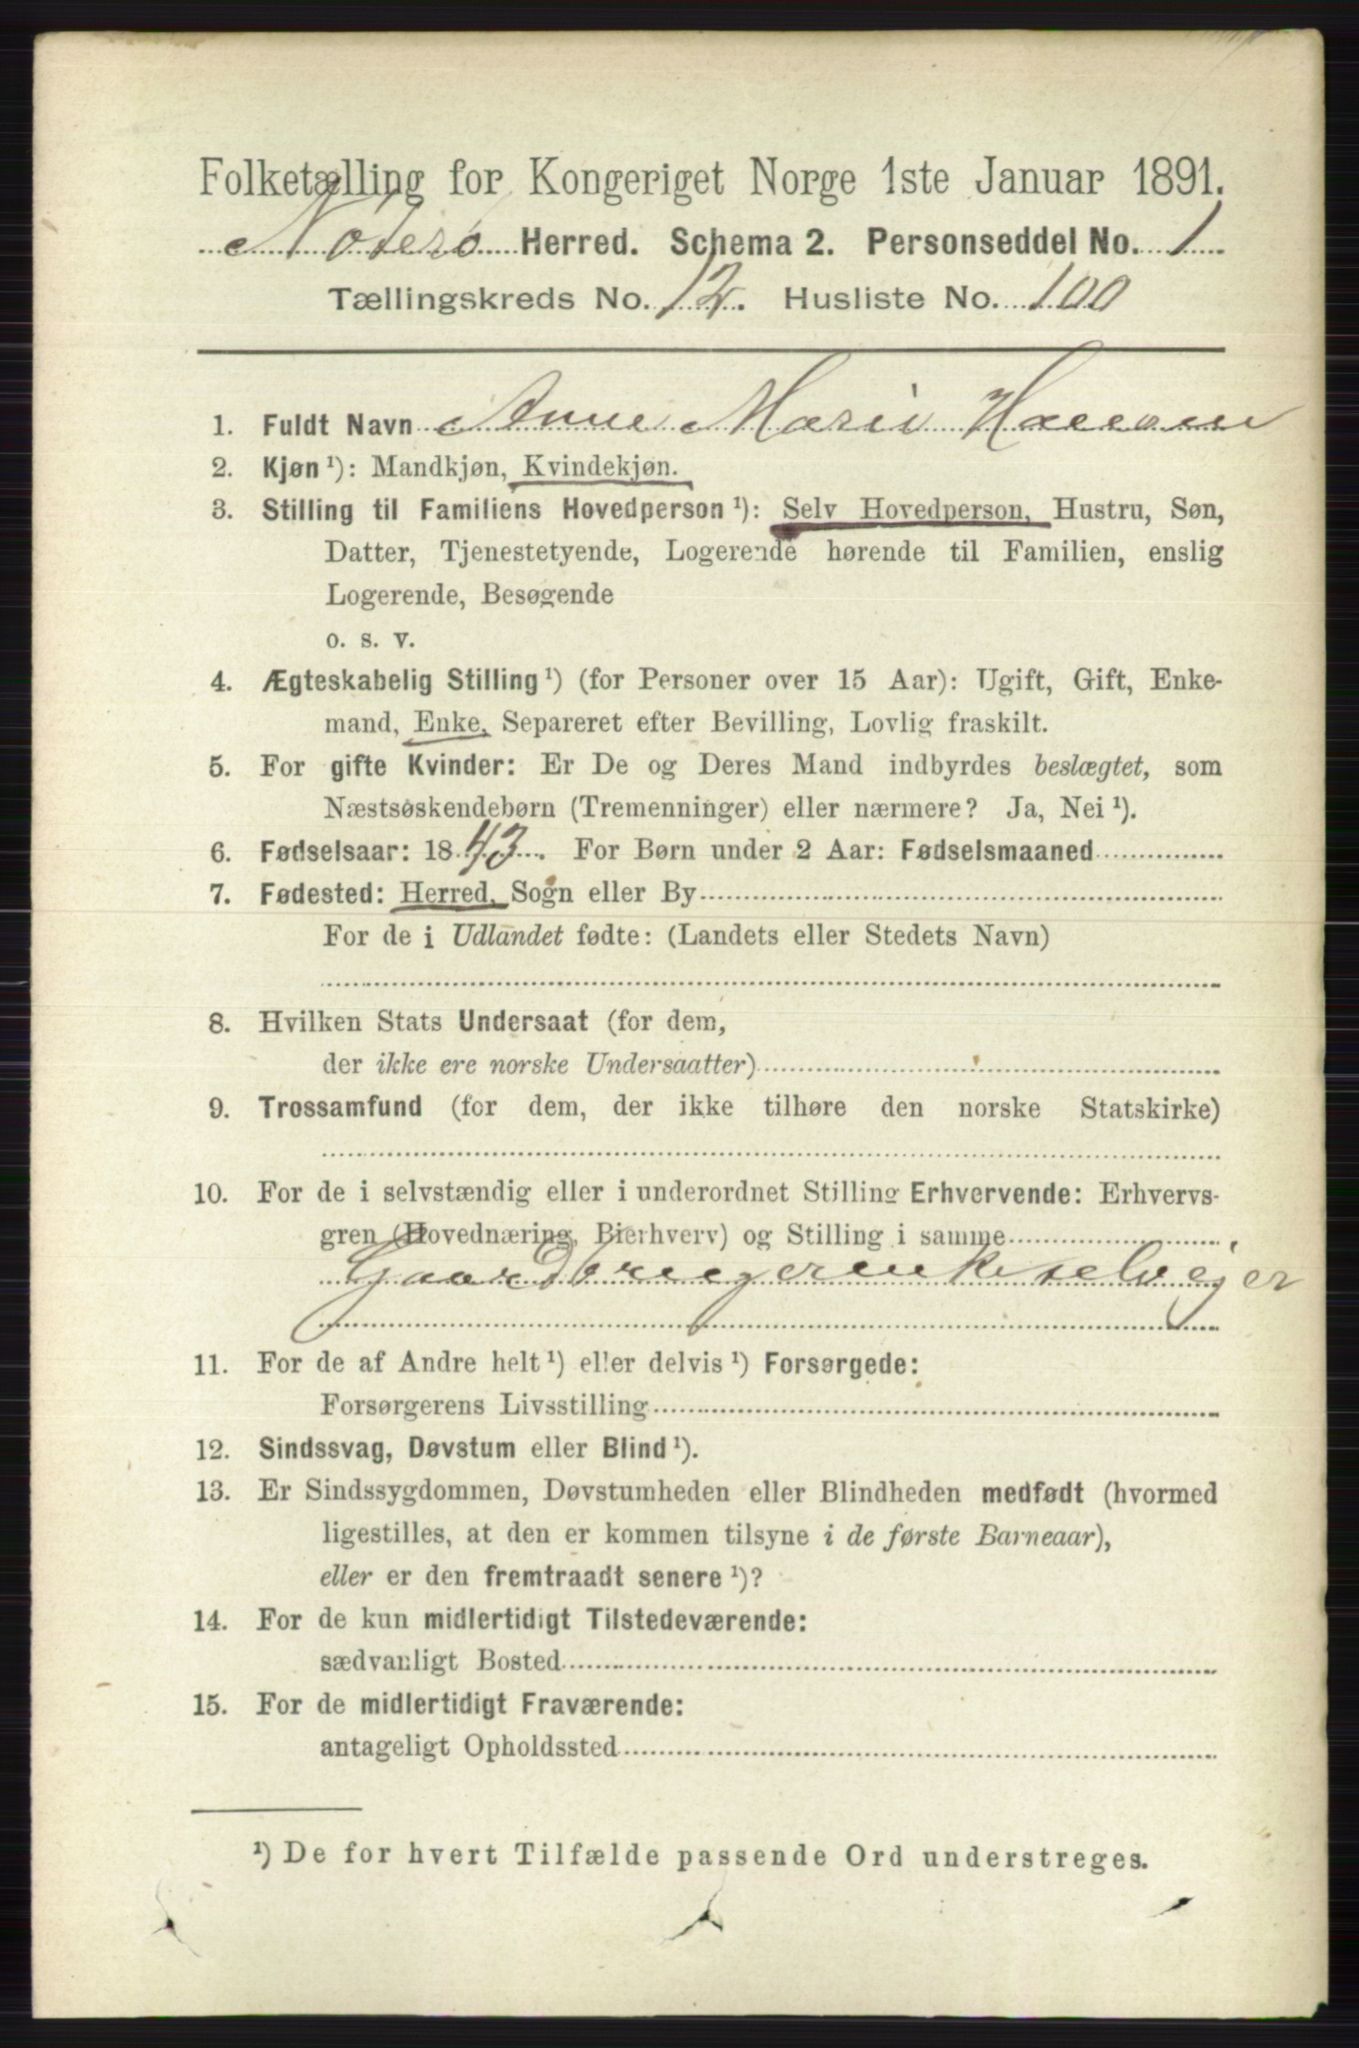 Folketælling for Kongeriget Norge 1ste Januar 1891.
Nøterø Herred. Schema 2. Personseddel No. 1
Tællingskreds No. 12. Husliste No. 100
1. Fuldt Navn Anne Marie
2. Kjøn ¹): Mandkjøn, Kvindekjøn.
3. Stilling til Familiens Hovedperson ¹): Selv Hovedperson, Hustru, Søn,
Datter, Tjenestetyende, Logerende hørende til Familien, enslig
Logerende, Besøgende
o. s. v.
4. Ægteskabelig Stilling ¹) (for Personer over 15 Aar): Ugift, Gift, Enke-
mand, Enke, Separeret efter Bevilling, Lovlig fraskilt.
5. For gifte Kvinder: Er De og Deres Mand indbyrdes beslægtet, som
Næstsøskendebørn (Tremenninger) eller nærmere? Ja, Nei ¹).
6. Fødselsaar: 1843. For Børn under 2 Aar: Fødselsmaaned
7. Fødested: Herred, Sogn eller By
For de i Udlandet fødte: (Landets eller Stedets Navn)
8. Hvilken Stats Undersaat (for dem,
der ikke ere norske Undersaatter)
9. Trossamfund (for dem, der ikke tilhøre den norske Statskirke)
10. For de i selvstændig eller i underordnet Stilling Erhvervende: Erhvervs-
gren (Hovednæring, Bierhverv) og Stilling i samme
Gaardbrugerenke selvejer
11. For de af Andre helt ¹) eller delvis ¹) Forsørgede:
Forsørgerens Livsstilling
12. Sindssvag, Døvstum eller Blind ¹).
13. Er Sindssygdommen, Døvstumheden eller Blindheden medfødt (hvormed
ligestilles, at den er kommen tilsyne i de første Barneaar),
eller er den fremtraadt senere ¹)?
14. For de kun midlertidigt Tilstedeværende:
sædvanligt Bosted
15. For de midlertidigt Fraværende:
antageligt Opholdssted
¹) De for hvert Tilfælde passende Ord understreges.